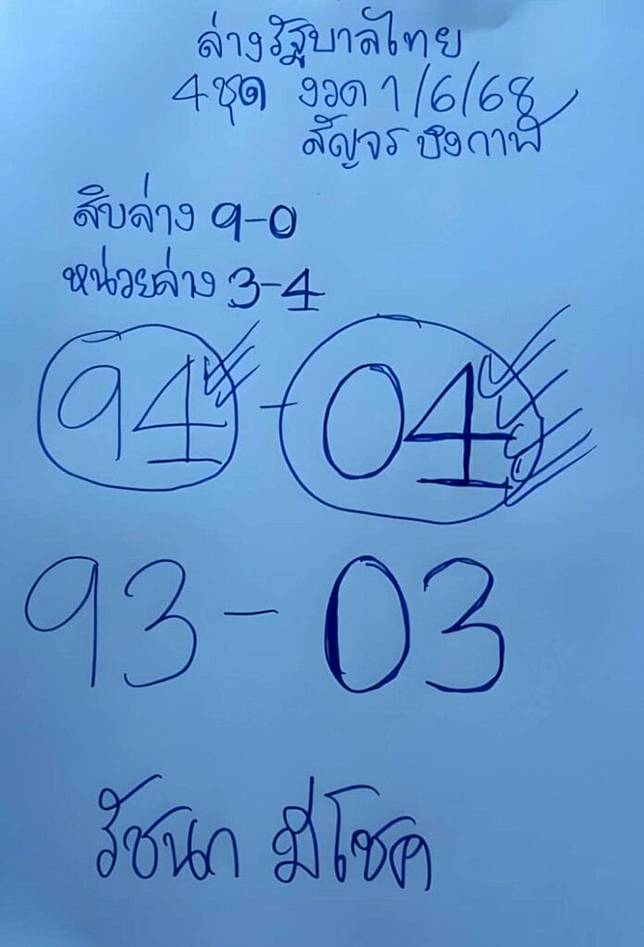 ล่างรัฐบาลไทย
4ชุด งวด 1/6/68
สัญจร บึงกาฬ
สิบล่าง 9-0
หน่วยล่าง 3-4
94 - 04
93 - 03
รัชนก มีโชค